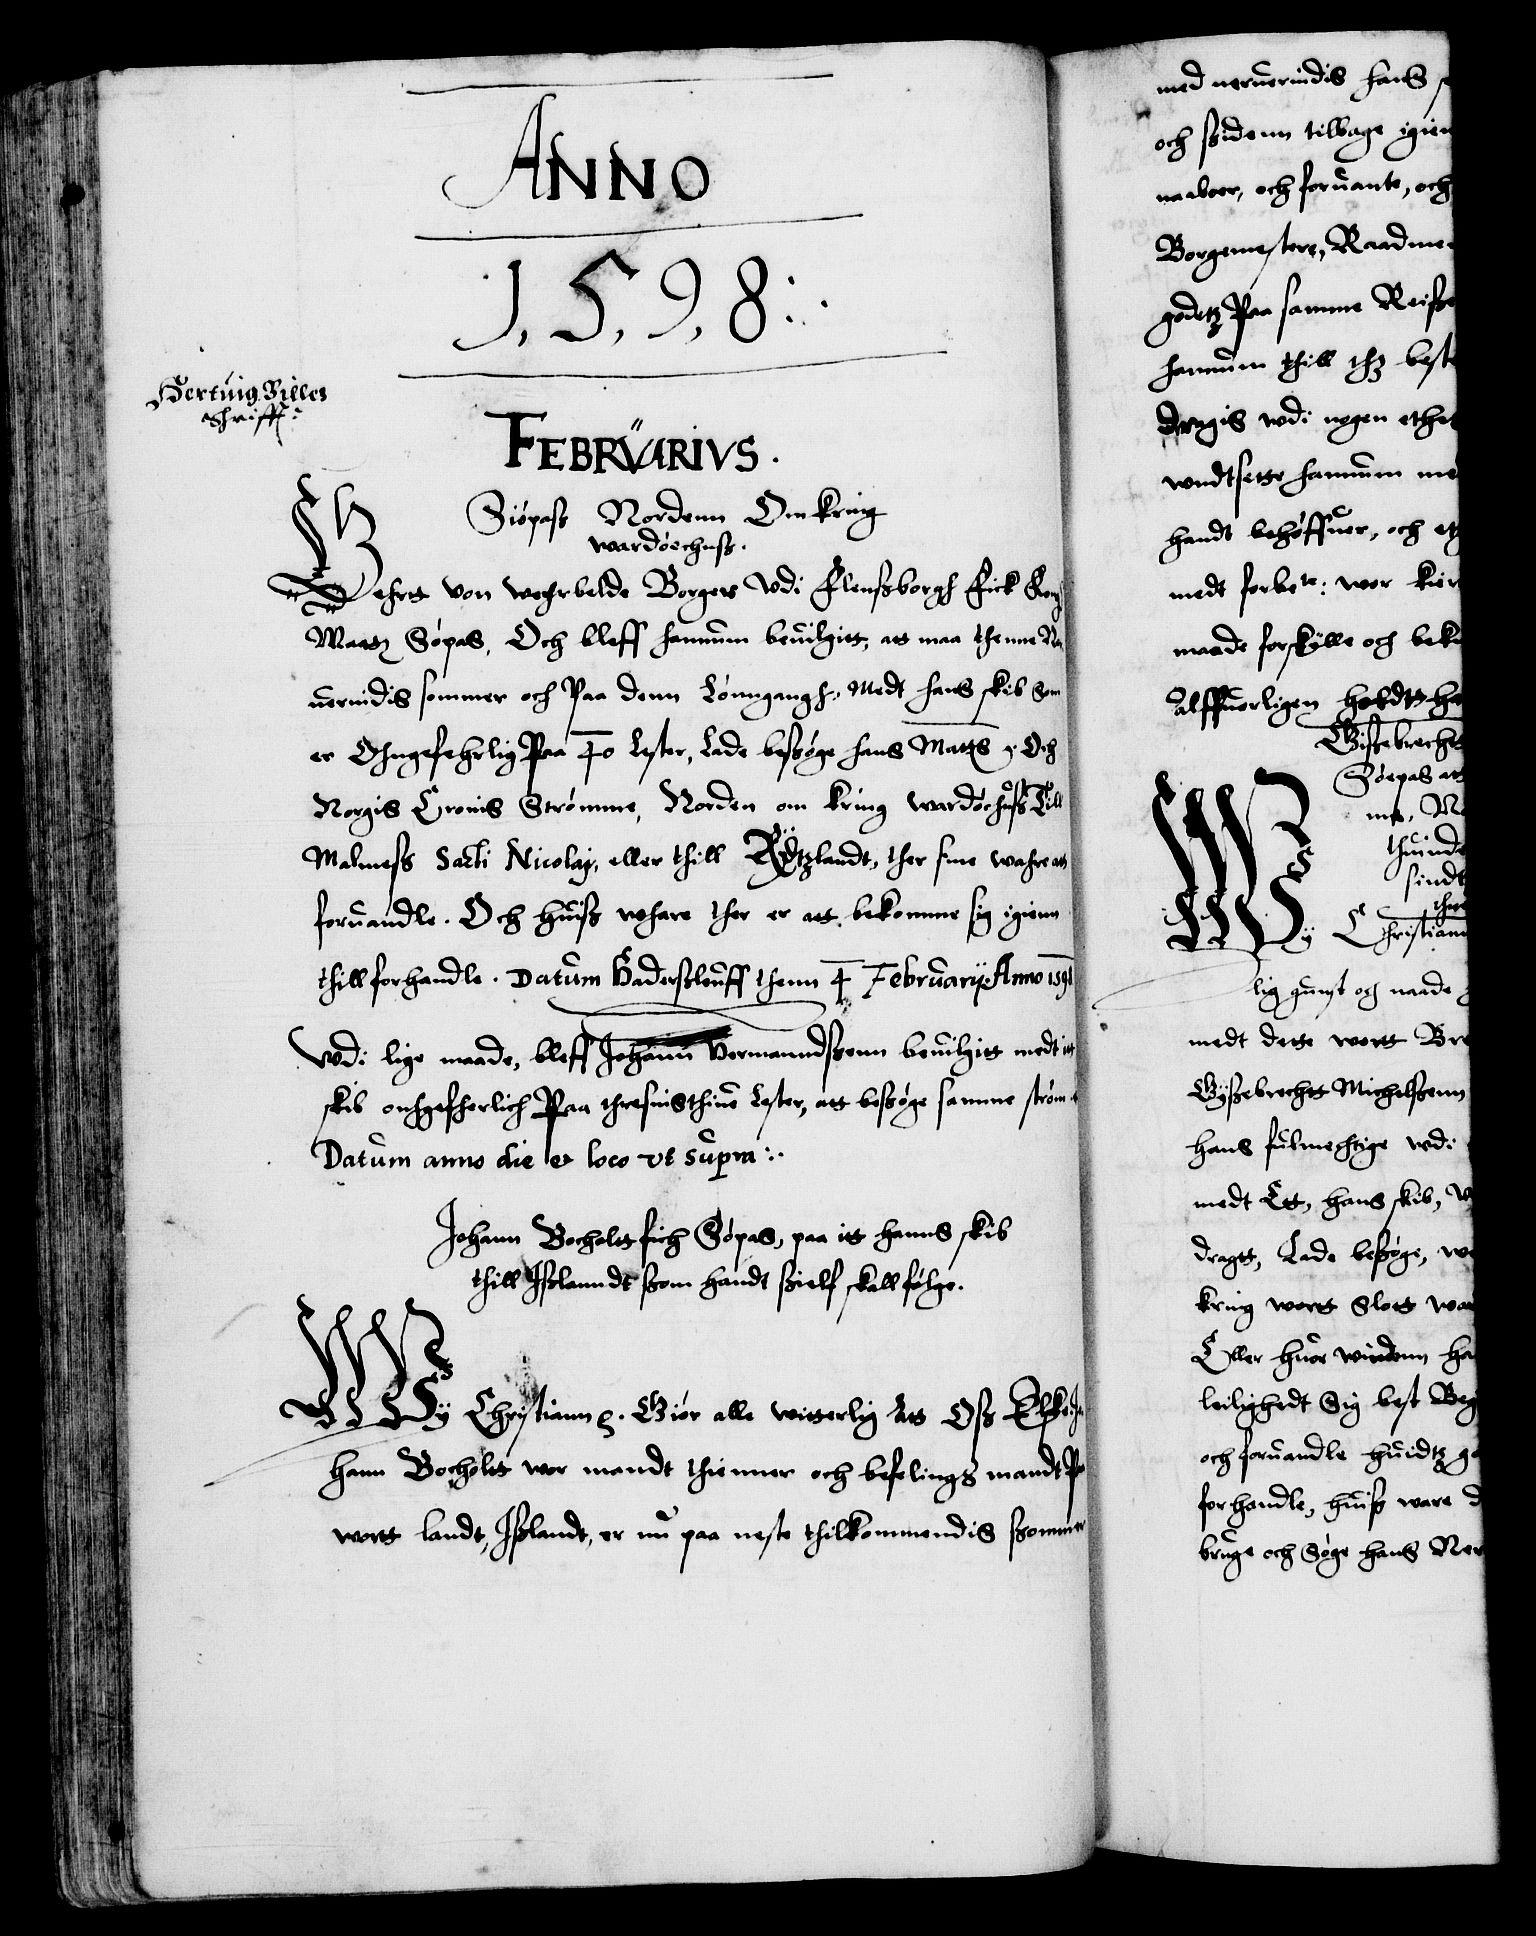 ANNO
1598
Hertuig Billes
Schrifft:
FEBRVARIVS.
Siöpass Nordenn Omkring
wardöehuss.
Gehrtt von wehrbelde Borger Vdi Flenssborgh Fick Kong
Maatz Söpas, Och bleff hannum beuilgitt, att maa thenne Ner
uerindis sommer och Paa denn Lönngangh, Medt hans skib som
er Ohngefehrlig Paa 40 Lester, Lade bessöge hans Matts och
Norgis Cronis Strømme, Norden om kring wardöehuss Till
Malmess Sacti Nicolaj, eller thill Rÿdtzlandt, ther sine wahre att
foruandle. Och huiss wahre ther er att bekomme sig igienn
thill forhandle. Datum Haderssleuff thenn 4 Februarij Anno 1598
Vdi lige maade, bleff Johann Hermanndssenn beuilgitt medt itt
skib ohngeferlich Paa thresinsthiue Lester, att bessöge samme ström
Datum anno die et loco vt supra:
Johann Bocholtt fich Söpas, paa itt hanns skib
thill Isslanndt ssom handt ssielf skall fölge.
Wy Christiann &. Giör alle witterlig Att Oss Elskel: Jo
hann Bocholtt wor mandt thienner och befelings mandt Paa
wortt landt, Isslandt, er nu paa neste thilkommendis ssommer
med neruerindis hans
och ssidenn tilbage igien
naaboer, och foruante, och
Borgemestere, Raadme
godtz Paa samme Reisse
hannum thill thz beste
dragis vdi nogen
vndtsette hannum me
handt behöffuer, och
medt forbete: wor
maade forskylle och
alffuorligen holdtz
Gissebrecht
Söepas att
Ne
sindt
Wy Christiann
lig gunst og naade
medt dette wortt Bre
Gyssebrechtt Michelssenn
hans fulmechtige vdi
medt Ett, hans skib,
dragtt, Lade bessöge,
kring wortt Slott war
Eller huor
leilighedt Sig best Beg
och foruandle huidtz
forhandle, huiss ware
bruge och Söge hans Ner